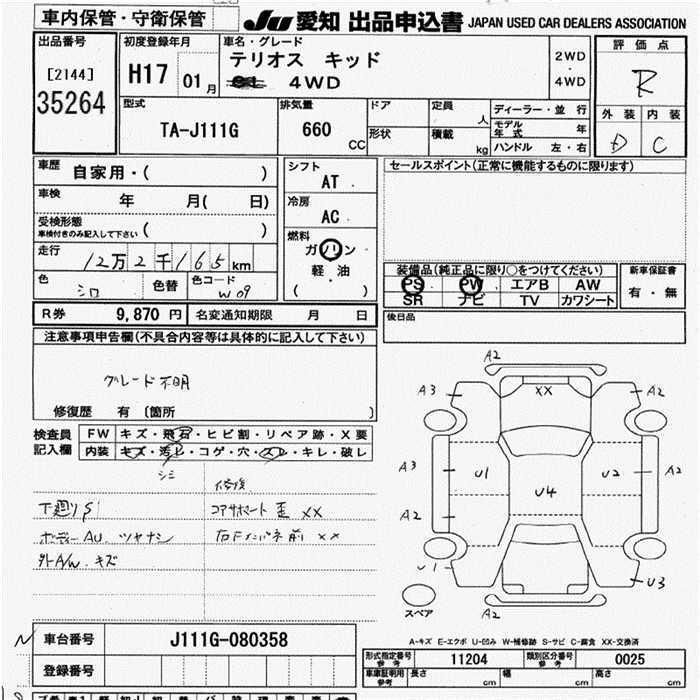 車内保管・守衛保管
JU 愛知 出品申込書 JAPAN USED CAR DEALERS ASSOCIATION
出品番号
[2144]
35264
初度登録年月
H17 01月
車名・グレード
テリオス キッド
4WD
2WD
・
4WD
評価点
R
外装 内装
D C
型式
TA-J111G
排気量
660 CC
ドア
形状
定員 人
積載 kg
ディーラー・並行
モデル年式 年
ハンドル 左・右
車歴 自家用・( )
車検 年 月( 日)
受検形態
車検付きのみ記入して下さい ( )
走行 12万2千165km
色 シロ 色替 色コード W09
シフト
AT
冷房
AC
燃料
ガソリン
軽・油
( )
セールスポイント(正常に機能するものに限ります)
装備品(純正品に限り○をつけてください)
PS PW エアB AW
SR ナビ TV カワシート
新車保証書
有・無
R券 9,870円 名変通知期限 月 日
後日品
注意事項申告欄(不具合内容等は具体的に記入して下さい)
グレード不明
修復歴 有 〔箇所 〕
検査員記入欄
FW キズ・飛石・ヒビ割・リペア跡・X要
内装 キズ・汚レ・コゲ・穴・スレ・キレ・破レ
シミ
修復
下廻りS1
コアサポート歪 XX
ボディーAU ツヤナシ
右Fインパネ前 XX
外A/W キズ
A2
A3 XX A2
A3 U1 U4 U2 A2
A2
U1 U3
スペア A2
A-キズ E-エクボ U-凹み W-補修跡 S-サビ C-腐食 XX-交換済
N
車台番号 J111G-080358
登録番号
型式指定番号 参考 11204 類別区分番号 参考 0025
車庫証明用 参考 長さ cm 幅 cm 高さ cm